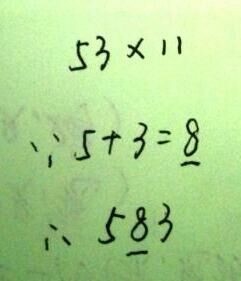 53 × 11
∵ 5 + 3 = 8
∴ 583